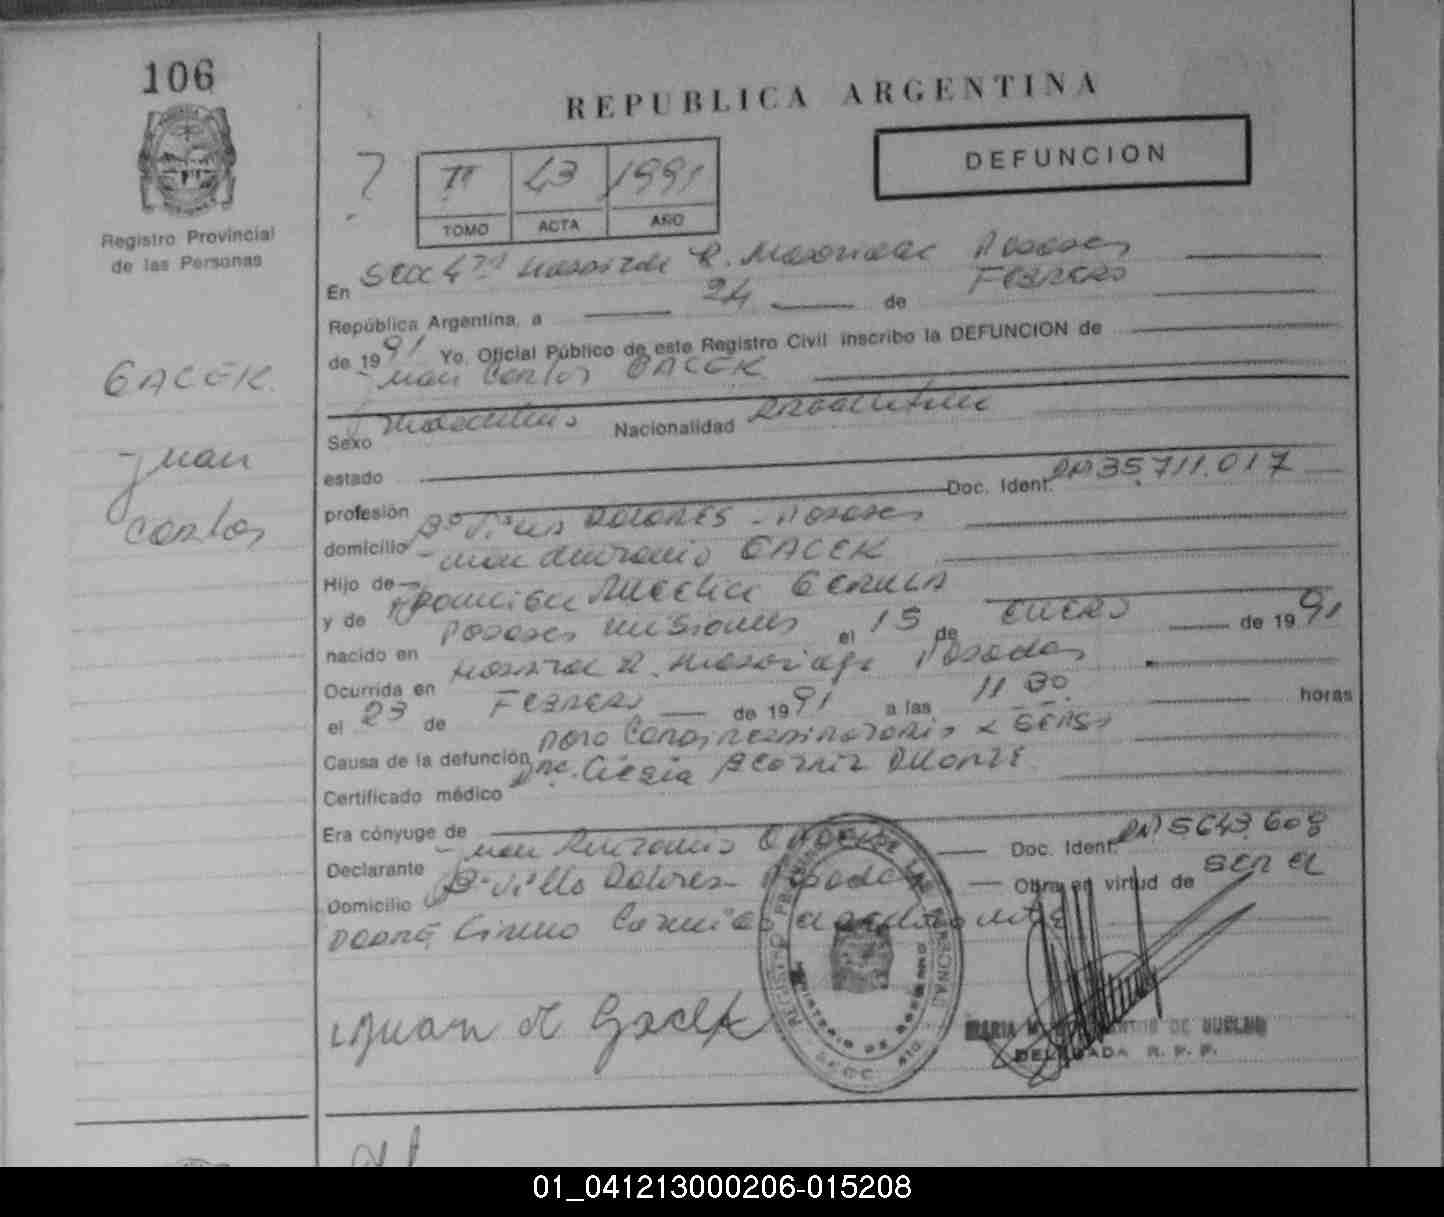 106
REPUBLICA ARGENTINA
DEFUNCION
?
II 43 1991
TOMO ACTA AÑO
Registro Provincial
de las Personas
En Secc 4ta Posadas
República Argentina, a 24 de Febrero
de 1991 Yo, Oficial Público de este Registro Civil inscribo la DEFUNCION de
Juan Carlos GACEK
GACEK
Juan
Carlos
Sexo masculino Nacionalidad Argentina
estado
profesión Doc. Ident. DNI 35.711.017
domicilio Bº Villa DOLORES - Posadas
Hijo de Juan Antonio GACEK
y de
nacido en Posadas Misiones el 15 de Enero de 1991
Ocurrida en Hospital R. Madariaga Posadas
el 23 de Febrero de 1991 a las 11 30 horas
Causa de la defunción paro Cardiorespiratorio
Certificado médico Dra.
Era cónyuge de
Declarante Juan Antonio GACEK Doc. Ident. DNI 5643.608
Domicilio Bº Villa Dolores - Posadas Obra en virtud de ser el
padre
Juan A Gacek
REGISTRO PROVINCIAL DE LAS PERSONAS
MINISTERIO DE GOBIERNO
MARIA DE
DELEGADA R. P. P.
01_041213000206-015208